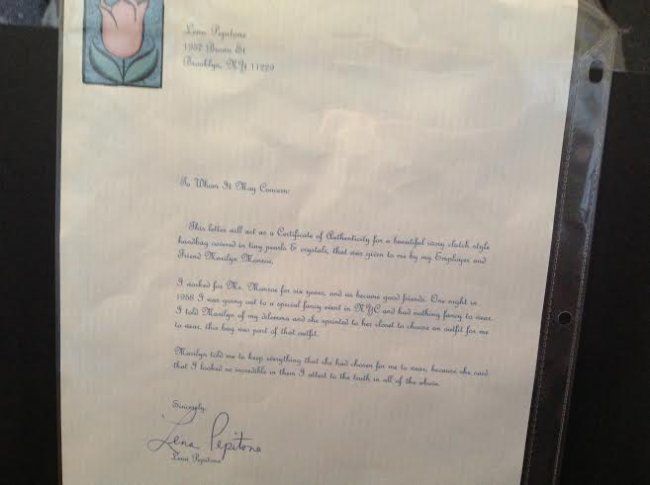 Lena Pepitone
1957 Brown St
Brooklyn, NY 11229
To Whom It May Concern:
This letter will act as a Certificate of Authenticity for a beautiful ivory clutch style
handbag covered in tiny pearls & crystals, that was given to me by my Employer and
Friend Marilyn Monroe.
I worked for Ms. Monroe for six years, and we became good friends. One night in
1958 I was going out to a special fancy event in NYC and had nothing fancy to wear.
I told Marilyn of my dilemma and she sprinted to her closet to choose an outfit for me
to wear, this bag was part of that outfit.
Marilyn told me to keep everything that she had chosen for me to wear, because she said
that I looked so incredible in them I attest to the truth in all of the above.
Sincerely,
Lena Pepitone
Lena Pepitone